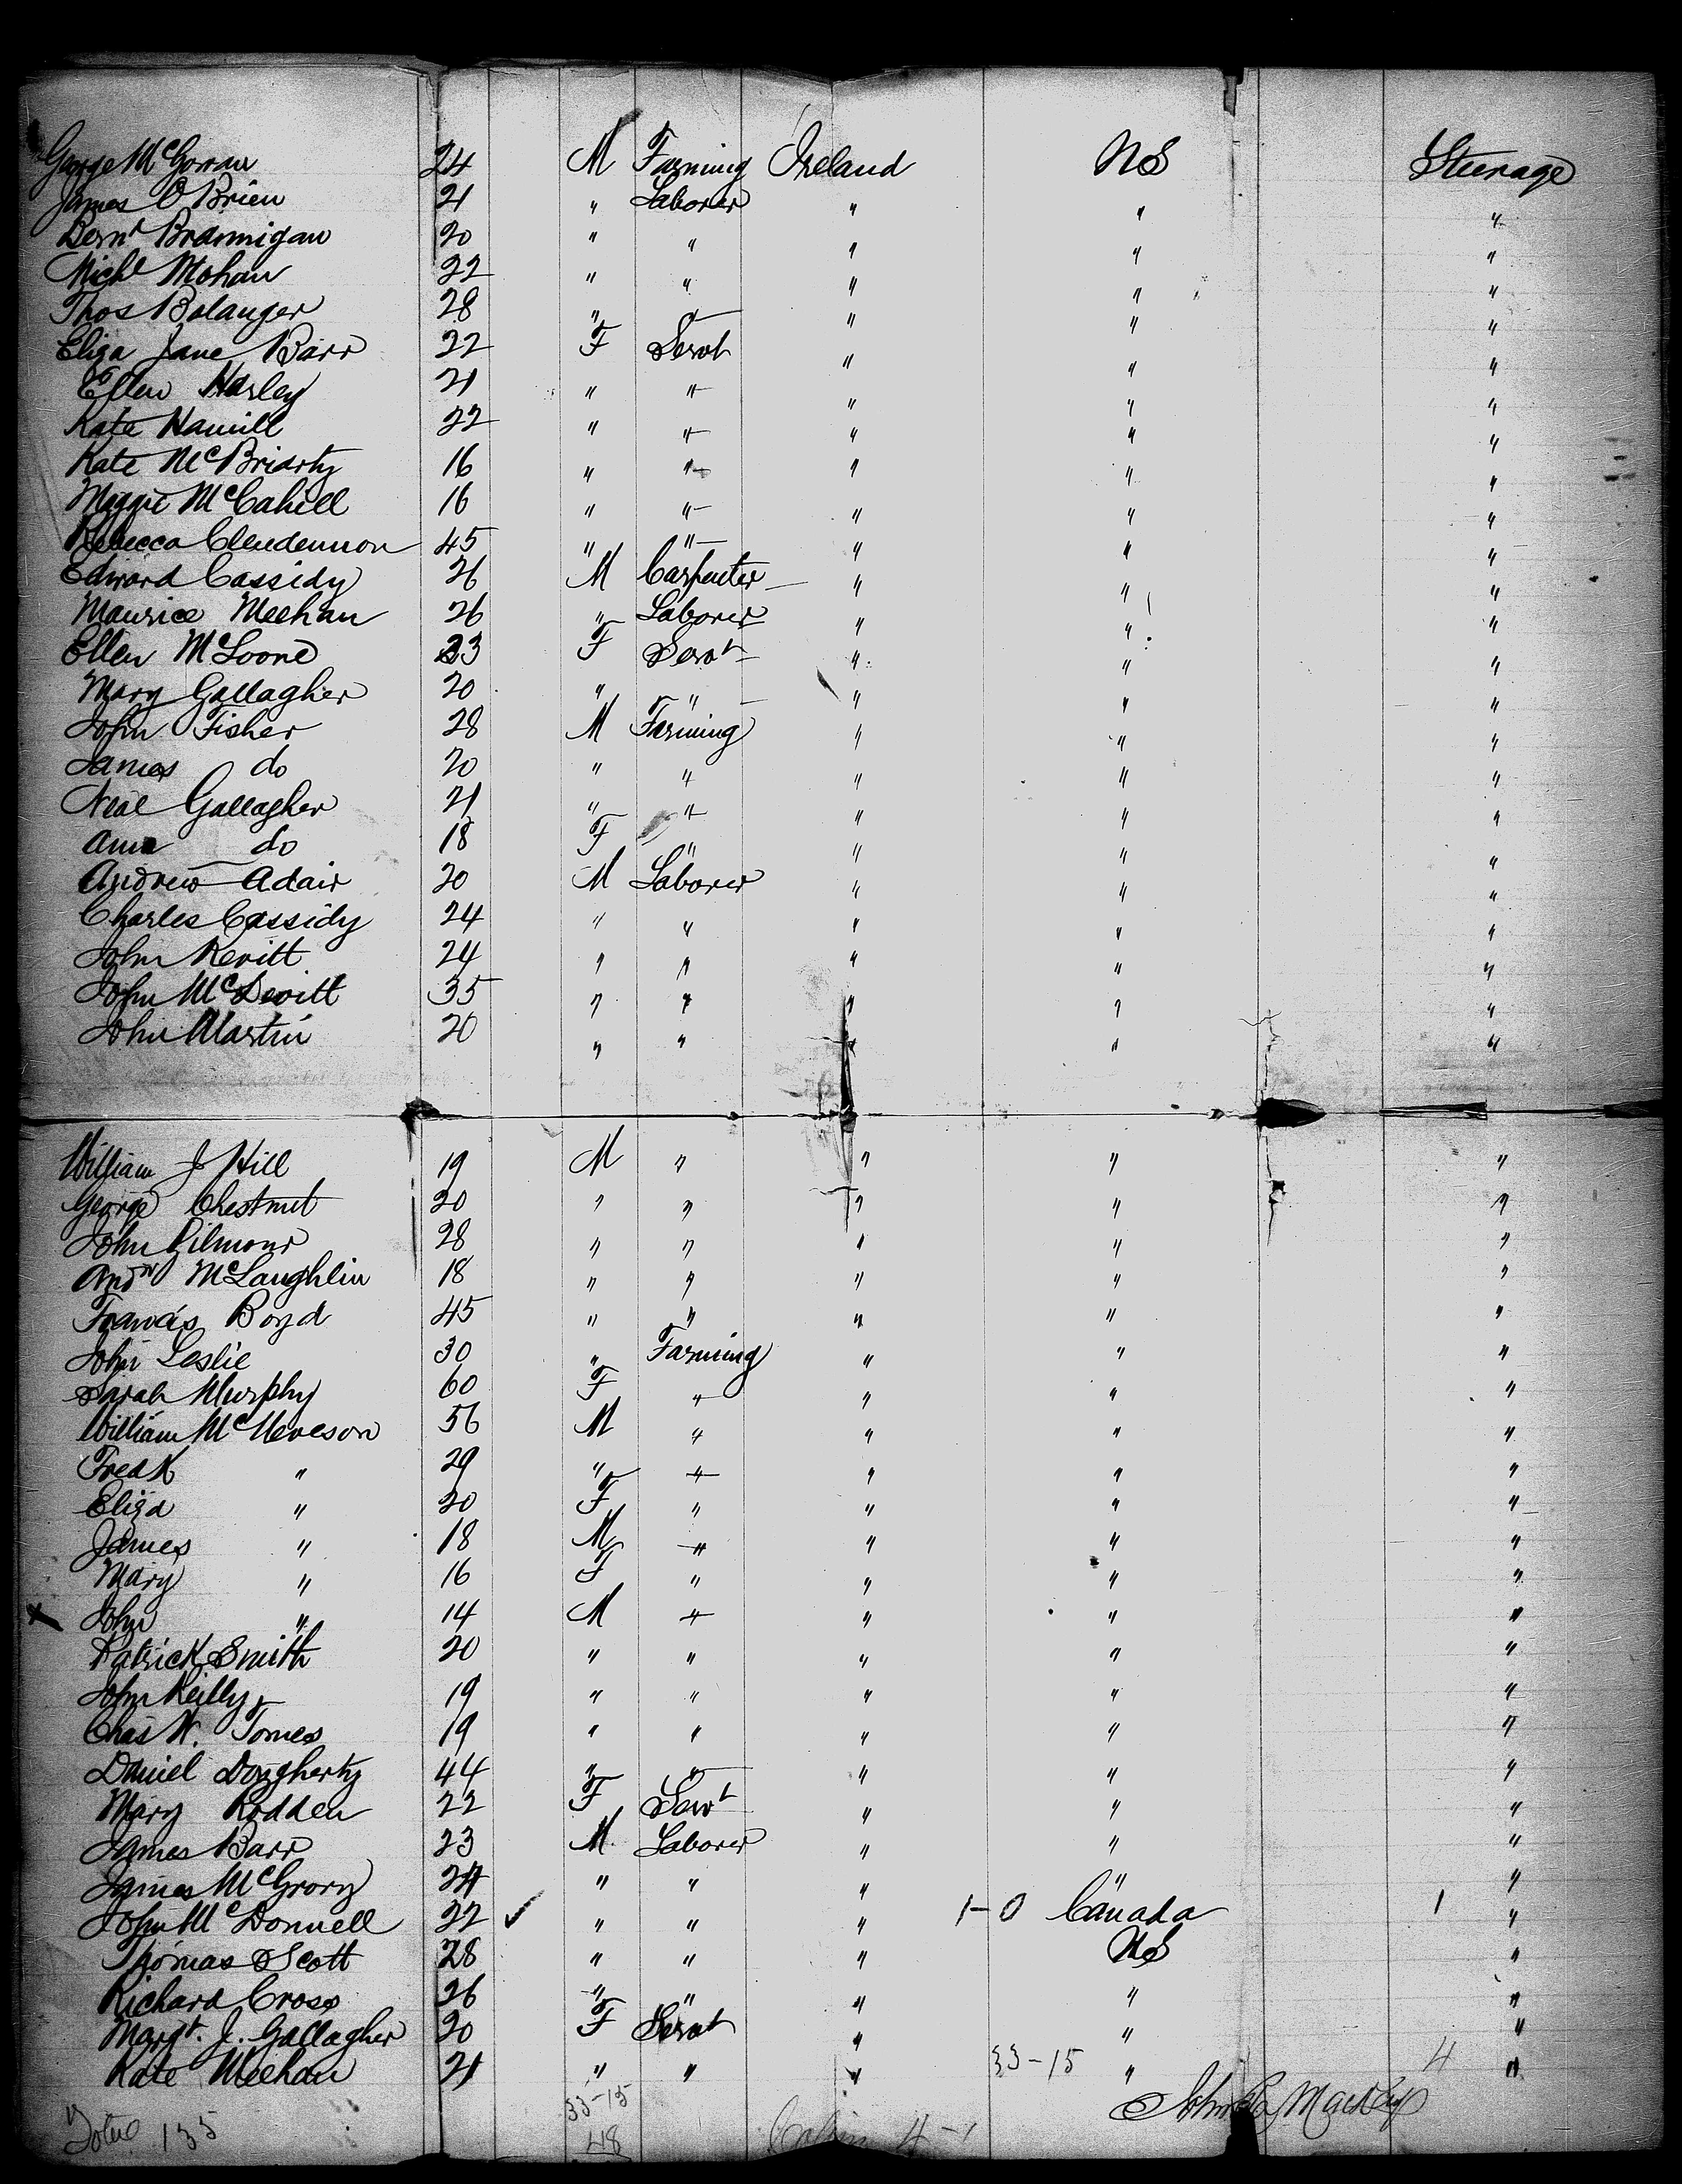 George McGorrow 24 M Farming Ireland US Steerage
James O'Brien 21 " Laborer " " "
Bernd Brannigan 20 " " " " "
Michl Mohan 22 " " " " "
Thos Bolanger 28 " " " " "
Eliza Jane Barr 22 F Servt " " "
Ellen Harley 21 " " " " "
Kate Hamill 22 " " " " "
Kate McBriarty 16 " " " " "
Maggie McCahill 16 " " " " "
Rebecca Clendennon 45 " " " " "
Edward Cassidy 26 M Carpenter " " "
Maurice Meehan 26 " Laborer " " "
Ellen McLoone 23 F Servt " " "
Mary Gallagher 20 " " " " "
John Fisher 28 M Farming " " "
James do 20 " " " " "
Neal Gallagher 21 " " " " "
Ann do 18 F " " " "
Andrew Adair 20 M Laborer " " "
Charles Cassidy 24 " " " " "
John Kevitt 24 " " " " "
John McDevitt 35 " " " " "
John Martin 20 " " " " "
William J Hill 19 M " " " "
George Chestnut 20 " " " " "
John Gilmour 28 " " " " "
Andw McLaughlin 18 " " " " "
Francis Boyd 45 " " " " "
John Leslie 30 " Farming " " "
Sarah Murphy 60 F " " " "
William 56 M " " " "
Fredk " 29 " " " " "
Eliza " 20 F " " " "
James " 18 M " " " "
Mary " 16 F " " " "
x John " 14 M " " " "
Patrick Smith 20 " " " " "
John Reilly 19 " " " " "
Chas W. Tomes 19 " " " " "
Daniel Dougherty 44 " " " " "
Mary Rodden 22 F Servt " " "
James Barr 23 M Laborer " " "
James McGrory 24 " " " " "
John McDonnell 22 ✓ " " " 1-0 Canada 1 "
Thomas Scott 28 " " " US "
Richard Cross 26 " " " " "
Margt. J. Gallagher 20 F Servt " " "
Kate Meehan 21 " " " 33-15 " 4 "
33-15
Total 135 48 Cabin 4-1